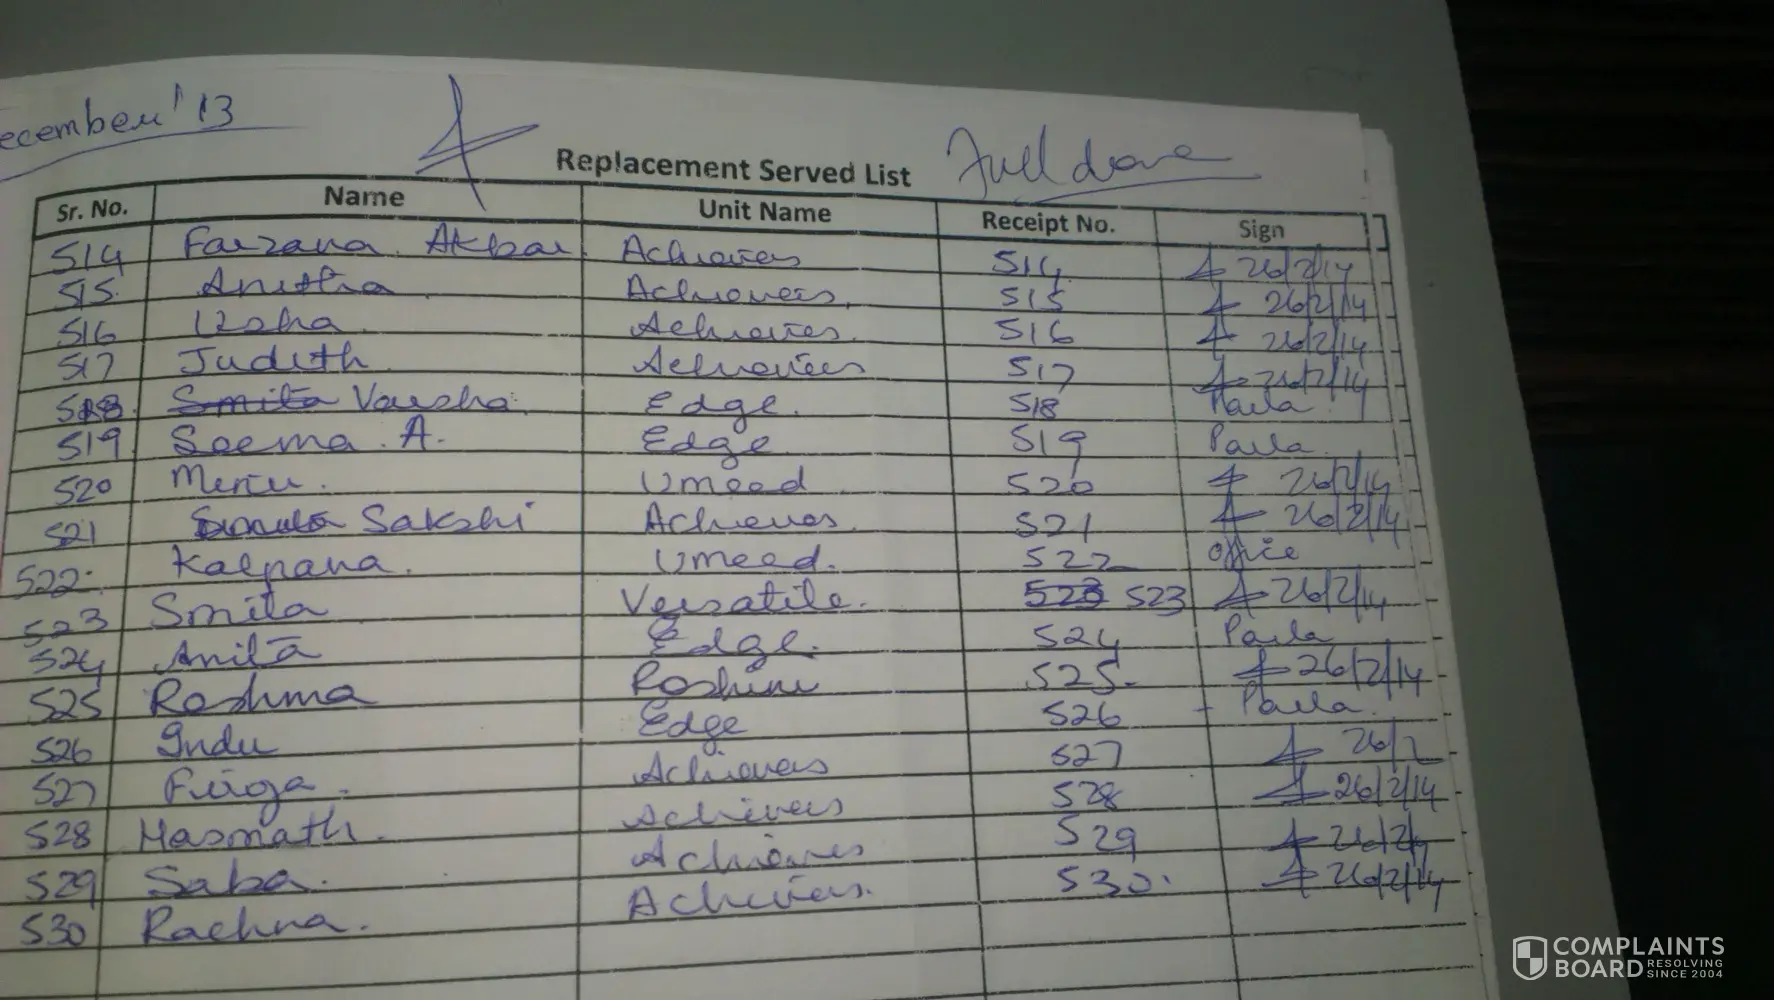 ecember '13
Replacement Served List Full done
Sr. No. Name Unit Name Receipt No. Sign
514 Farzana Akbar Achievers 514 26/2/14
515 Anitha Achievers 515 26/2/14
516 Usha Achievers 516 26/2/14
517 Judith Achievers 517 26/2/14
518 Smita Varsha Edge 518 Paula
519 Seema A. Edge 519 Paula
520 Umeed 520 26/2/14
521 Sakshi Achievers 521 26/2/14
522 Kalpana Umeed. 522 office
523 Smita Versatile. 523 523 26/2/14
524 Anita Edge. 524 Paula
525 Reshma Roshni 525 26/2/14
526 Indu Edge 526 Paula
527 Achievers 527 26/2
528 Hasmath Achivers 528 26/2/14
529 Saba. Achievers 529 26/2/14
530 Rachna. Achievers. 530 26/2/14
COMPLAINTS
BOARD RESOLVING
SINCE 2004